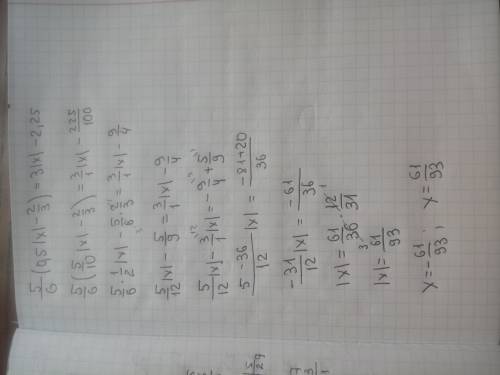 5/6 (0,5|x| - 2/3) = 3|x| - 2,25
5/6 (5/10 |x| - 2/3) = 3/1 |x| - 225/100
5/6 · 1/2 |x| - 5/6 · 2/3 = 3/1 |x| - 9/4
5/12 |x| - 5/9 = 3/1 |x| - 9/4
5/12 |x| - 3/1 |x| = - 9/4 + 5/9
5 - 36/12 |x| = -81+20/36
-31/12 |x| = -61/36
|x| = 61/36 · 12/31
|x| = 61/93
x = -61/93 ; x = 61/93